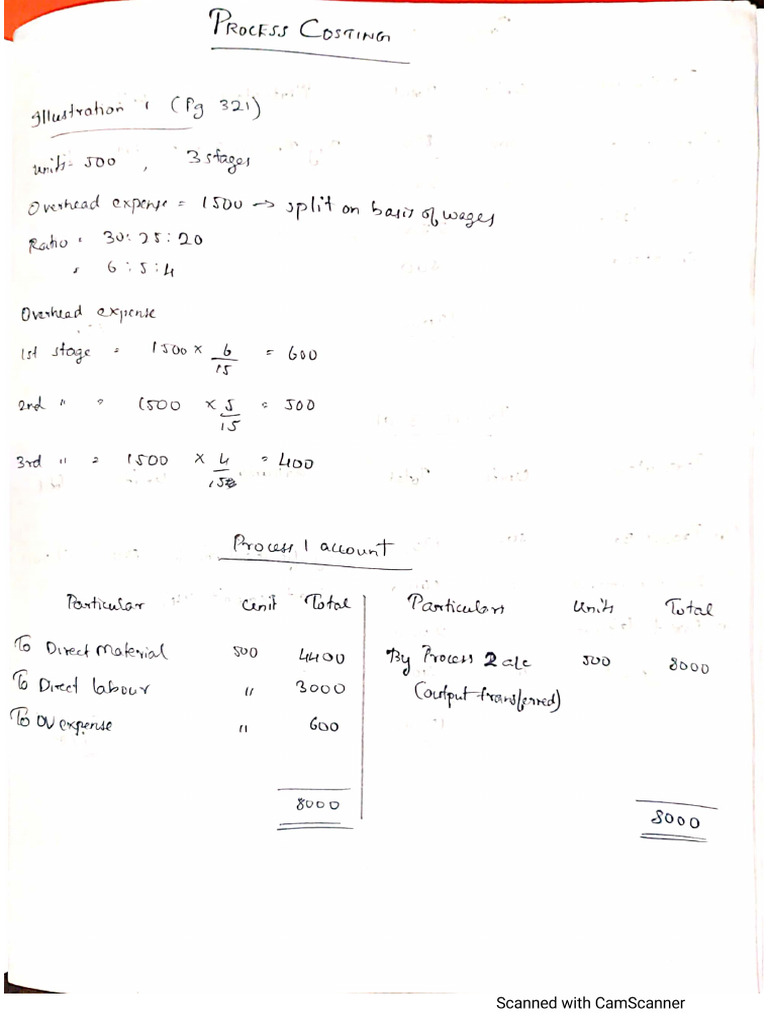 PROCESS COSTING
Illustration 1 (Pg 321)
Units= 500 , 3 stages
Overhead expense = 1500 → split on basis of wages
Ratio = 30:25:20
= 6:5:4
Overhead expense
1st stage = 1500 × 6/15 = 600
2nd " = 1500 × 5/15 = 500
3rd " = 1500 × 4/15 = 400
Process 1 account
Particular Unit Total Particulars Units Total
To Direct Material 500 4400 By Process 2 a/c 500 8000
To Direct labour " 3000 (output transferred)
To OV expense " 600
8000 8000
Scanned with CamScanner